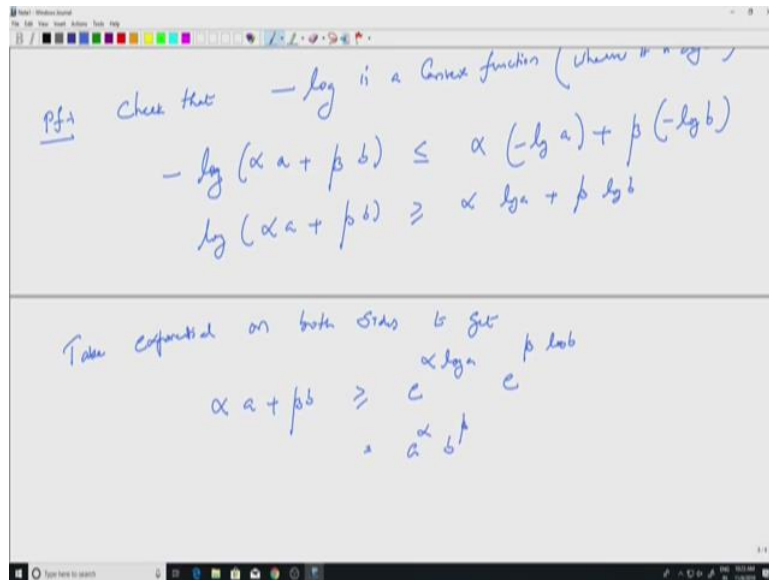 Note1 - Windows Journal
File Edit View Insert Actions Tools Help
B I
Pf:- Check that - log is a Convex function (
- log (α a + β b) ≤ α (-lg a) + β (-lg b)
log (α a + β b) ≥ α lg a + β lg b
Take exponential on both sides to get
α a + β b ≥ e^{α log a} e^{β log b}
= a^α b^β
Type here to search
ENG